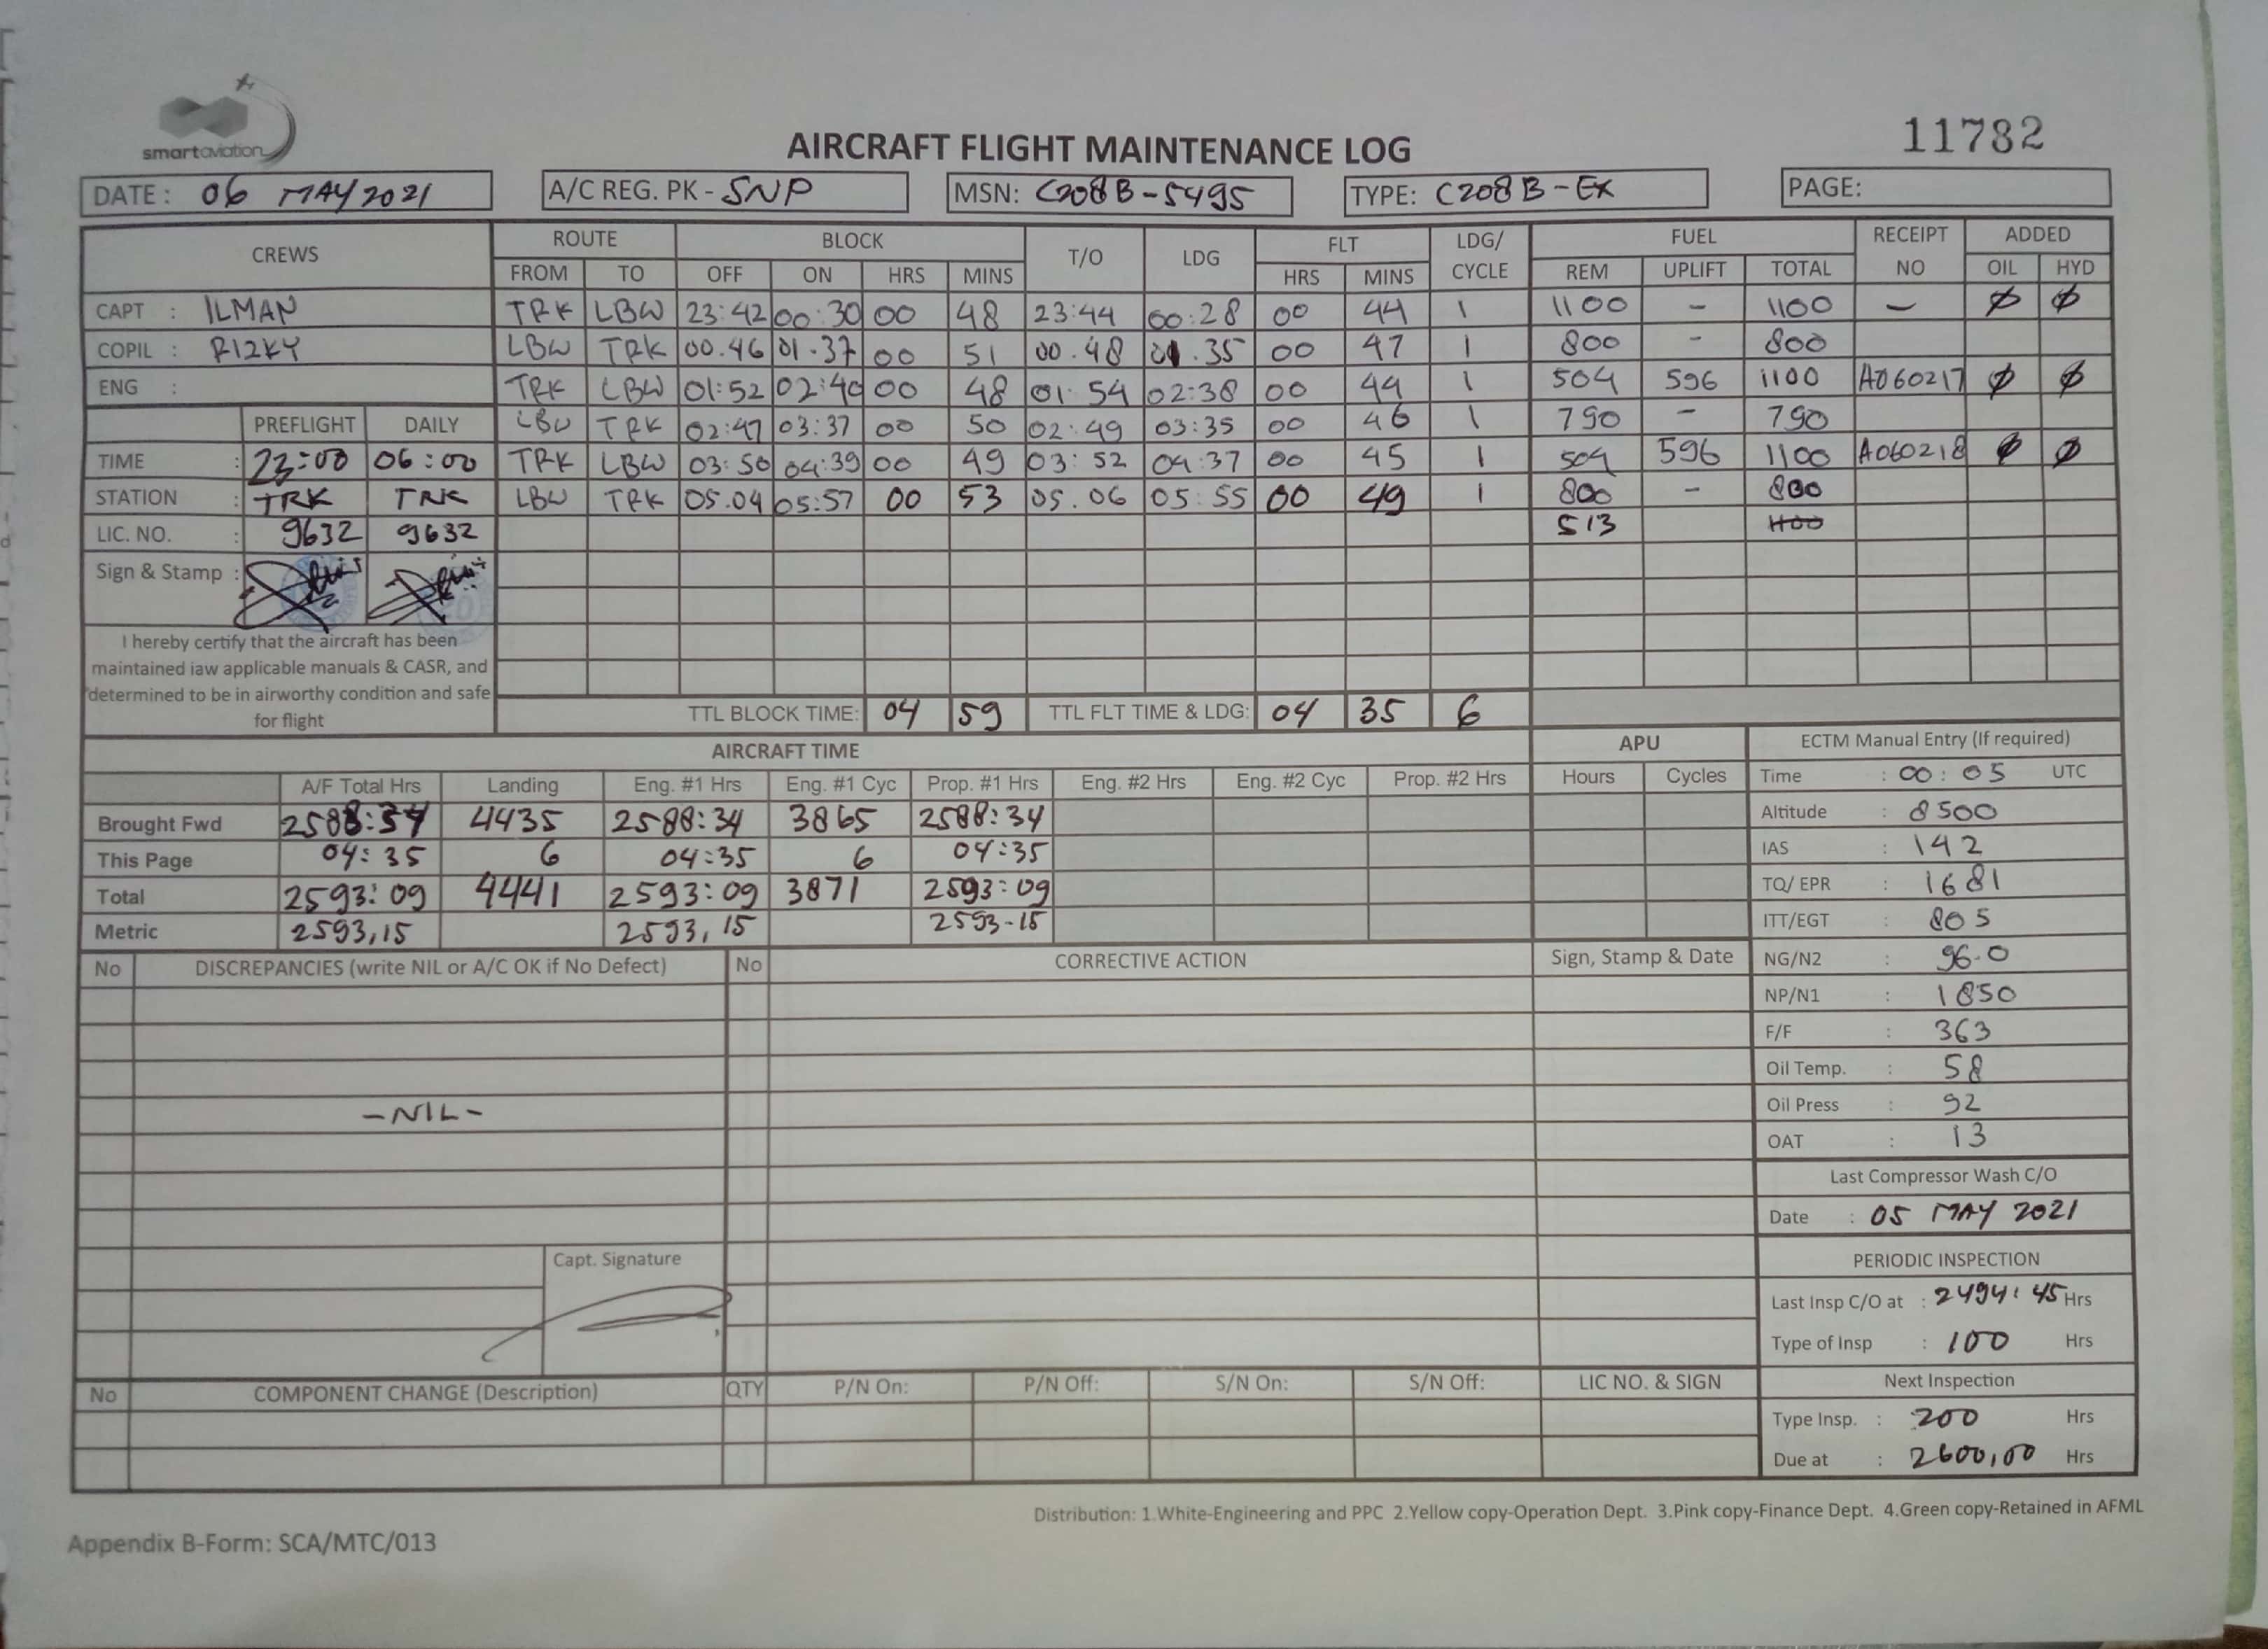 smartaviation
11782
AIRCRAFT FLIGHT MAINTENANCE LOG
DATE : 06 MAY 2021 A/C REG. PK - SNP MSN: C208B-5495 TYPE: C208B-EX PAGE:
CREWS ROUTE BLOCK T/O LDG FLT LDG/ CYCLE FUEL RECEIPT NO ADDED
FROM TO OFF ON HRS MINS HRS MINS REM UPLIFT TOTAL OIL HYD
CAPT : ILMAN TRK LBW 23:42 00:30 00 48 23:44 00:28 00 44 1 1100 - 1100 - Ø Ø
COPIL : RIZKY LBW TRK 00.46 01.37 00 51 00.48 01.35 00 47 1 800 - 800
ENG : TRK LBW 01:52 02:40 00 48 01:54 02:38 00 44 1 504 596 1100 A060217 Ø Ø
PREFLIGHT DAILY LBW TRK 02:47 03:37 00 50 02:49 03:35 00 46 1 790 - 790
TIME : 23:00 06:00 TRK LBW 03:50 04:39 00 49 03:52 04:37 00 45 1 504 596 1100 A060218 Ø Ø
STATION : TRK TRK LBW TRK 05.04 05:57 00 53 05.06 05:55 00 49 1 800 - 800
LIC. NO. : 9632 9632 513 1100
Sign & Stamp :
I hereby certify that the aircraft has been
maintained iaw applicable manuals & CASR, and
determined to be in airworthy condition and safe
for flight
TTL BLOCK TIME: 04 59 TTL FLT TIME & LDG: 04 35 6
AIRCRAFT TIME APU ECTM Manual Entry (If required)
A/F Total Hrs Landing Eng. #1 Hrs Eng. #1 Cyc Prop. #1 Hrs Eng. #2 Hrs Eng. #2 Cyc Prop. #2 Hrs Hours Cycles Time : 00:05 UTC
Brought Fwd 2588:34 4435 2588:34 3865 2588:34 Altitude : 8500
This Page 04:35 6 04:35 6 04:35 IAS : 142
Total 2593:09 4441 2593:09 3871 2593:09 TQ/ EPR : 1681
Metric 2593,15 2593,15 2593-15 ITT/EGT : 805
No DISCREPANCIES (write NIL or A/C OK if No Defect) No CORRECTIVE ACTION Sign, Stamp & Date NG/N2 : 96.0
NP/N1 : 1850
F/F : 363
Oil Temp. : 58
-NIL- Oil Press : 92
OAT : 13
Last Compressor Wash C/O
Date : 05 MAY 2021
Capt. Signature PERIODIC INSPECTION
Last Insp C/O at : 2494:45 Hrs
Type of Insp : 100 Hrs
No COMPONENT CHANGE (Description) QTY P/N On: P/N Off: S/N On: S/N Off: LIC NO. & SIGN Next Inspection
Type Insp. : 200 Hrs
Due at : 2600,00 Hrs
Distribution: 1.White-Engineering and PPC 2.Yellow copy-Operation Dept. 3.Pink copy-Finance Dept. 4.Green copy-Retained in AFML
Appendix B-Form: SCA/MTC/013